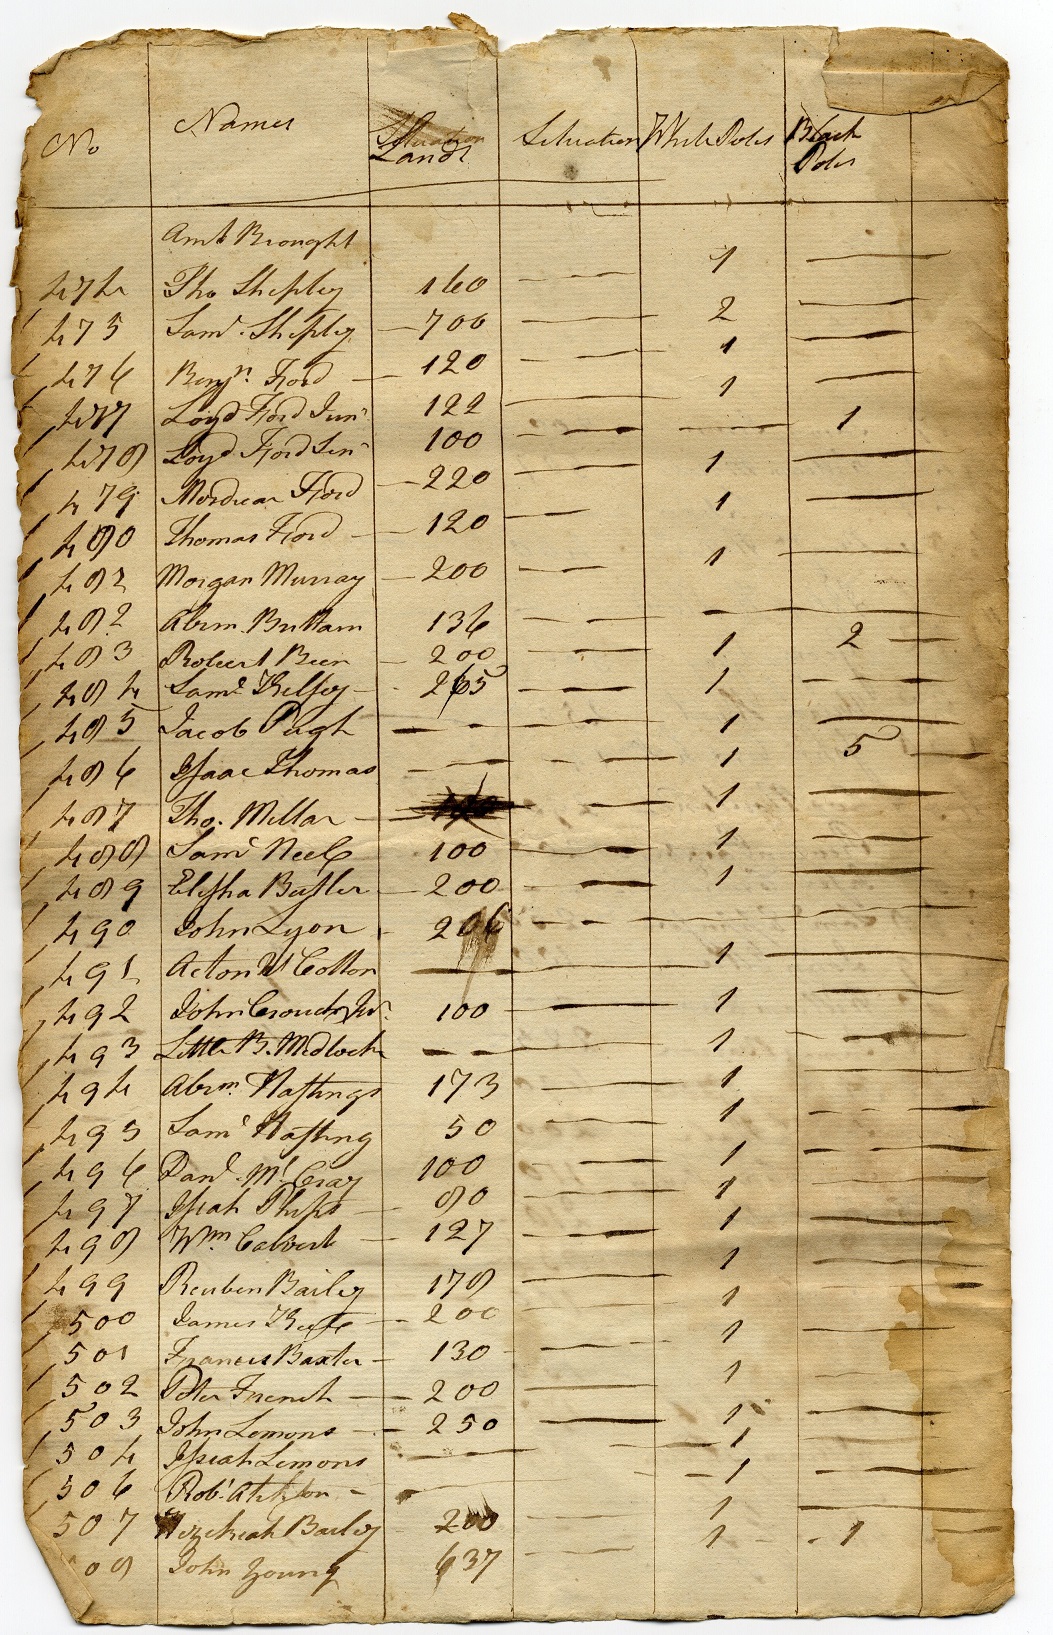 No Names Lands Situation White Poles Black Poles
Amt Brought
474 Tho Shipley 160 1
475 Saml. Shipley 700 2
476 Benjn. Ford 120 1
477 Loyd Ford Junr 122 1
478 Loyd Ford Senr 100 1
479 Mordicai Ford 220 1
480 Thomas Ford 120 1
482 Morgan Murray 200 1
482 Abrm. Buttam 136
483 Robert Been 200 1 2
484 Saml Kelsey 265 1
485 Jacob Pugh 1
486 Isaac Thomas 1 5
487 Tho. Millar 1
488 Saml Neel 100 1
489 Elisha Butler 200 1
490 John Lyon 206
491 Acton W Cotton 1
492 John Crouch Jur. 100 1
493 Little B. Medlock 1
494 Abrm. Hastings 173 1
495 Saml Hasting 50 1
496 Danl. McCray 100 1
497 Isiah Phips 80 1
498 Wm Calvert 127 1
499 Reuben Bailey 178 1
500 James 200 1
501 Francis Baxter 130 1
502 Peter French 200 1
503 John Lemons 250 1
504 Isiah Lemons 1
506 Robt. 1
507 Hezekiah Bailey 200 1
08 John Young 637 1 1